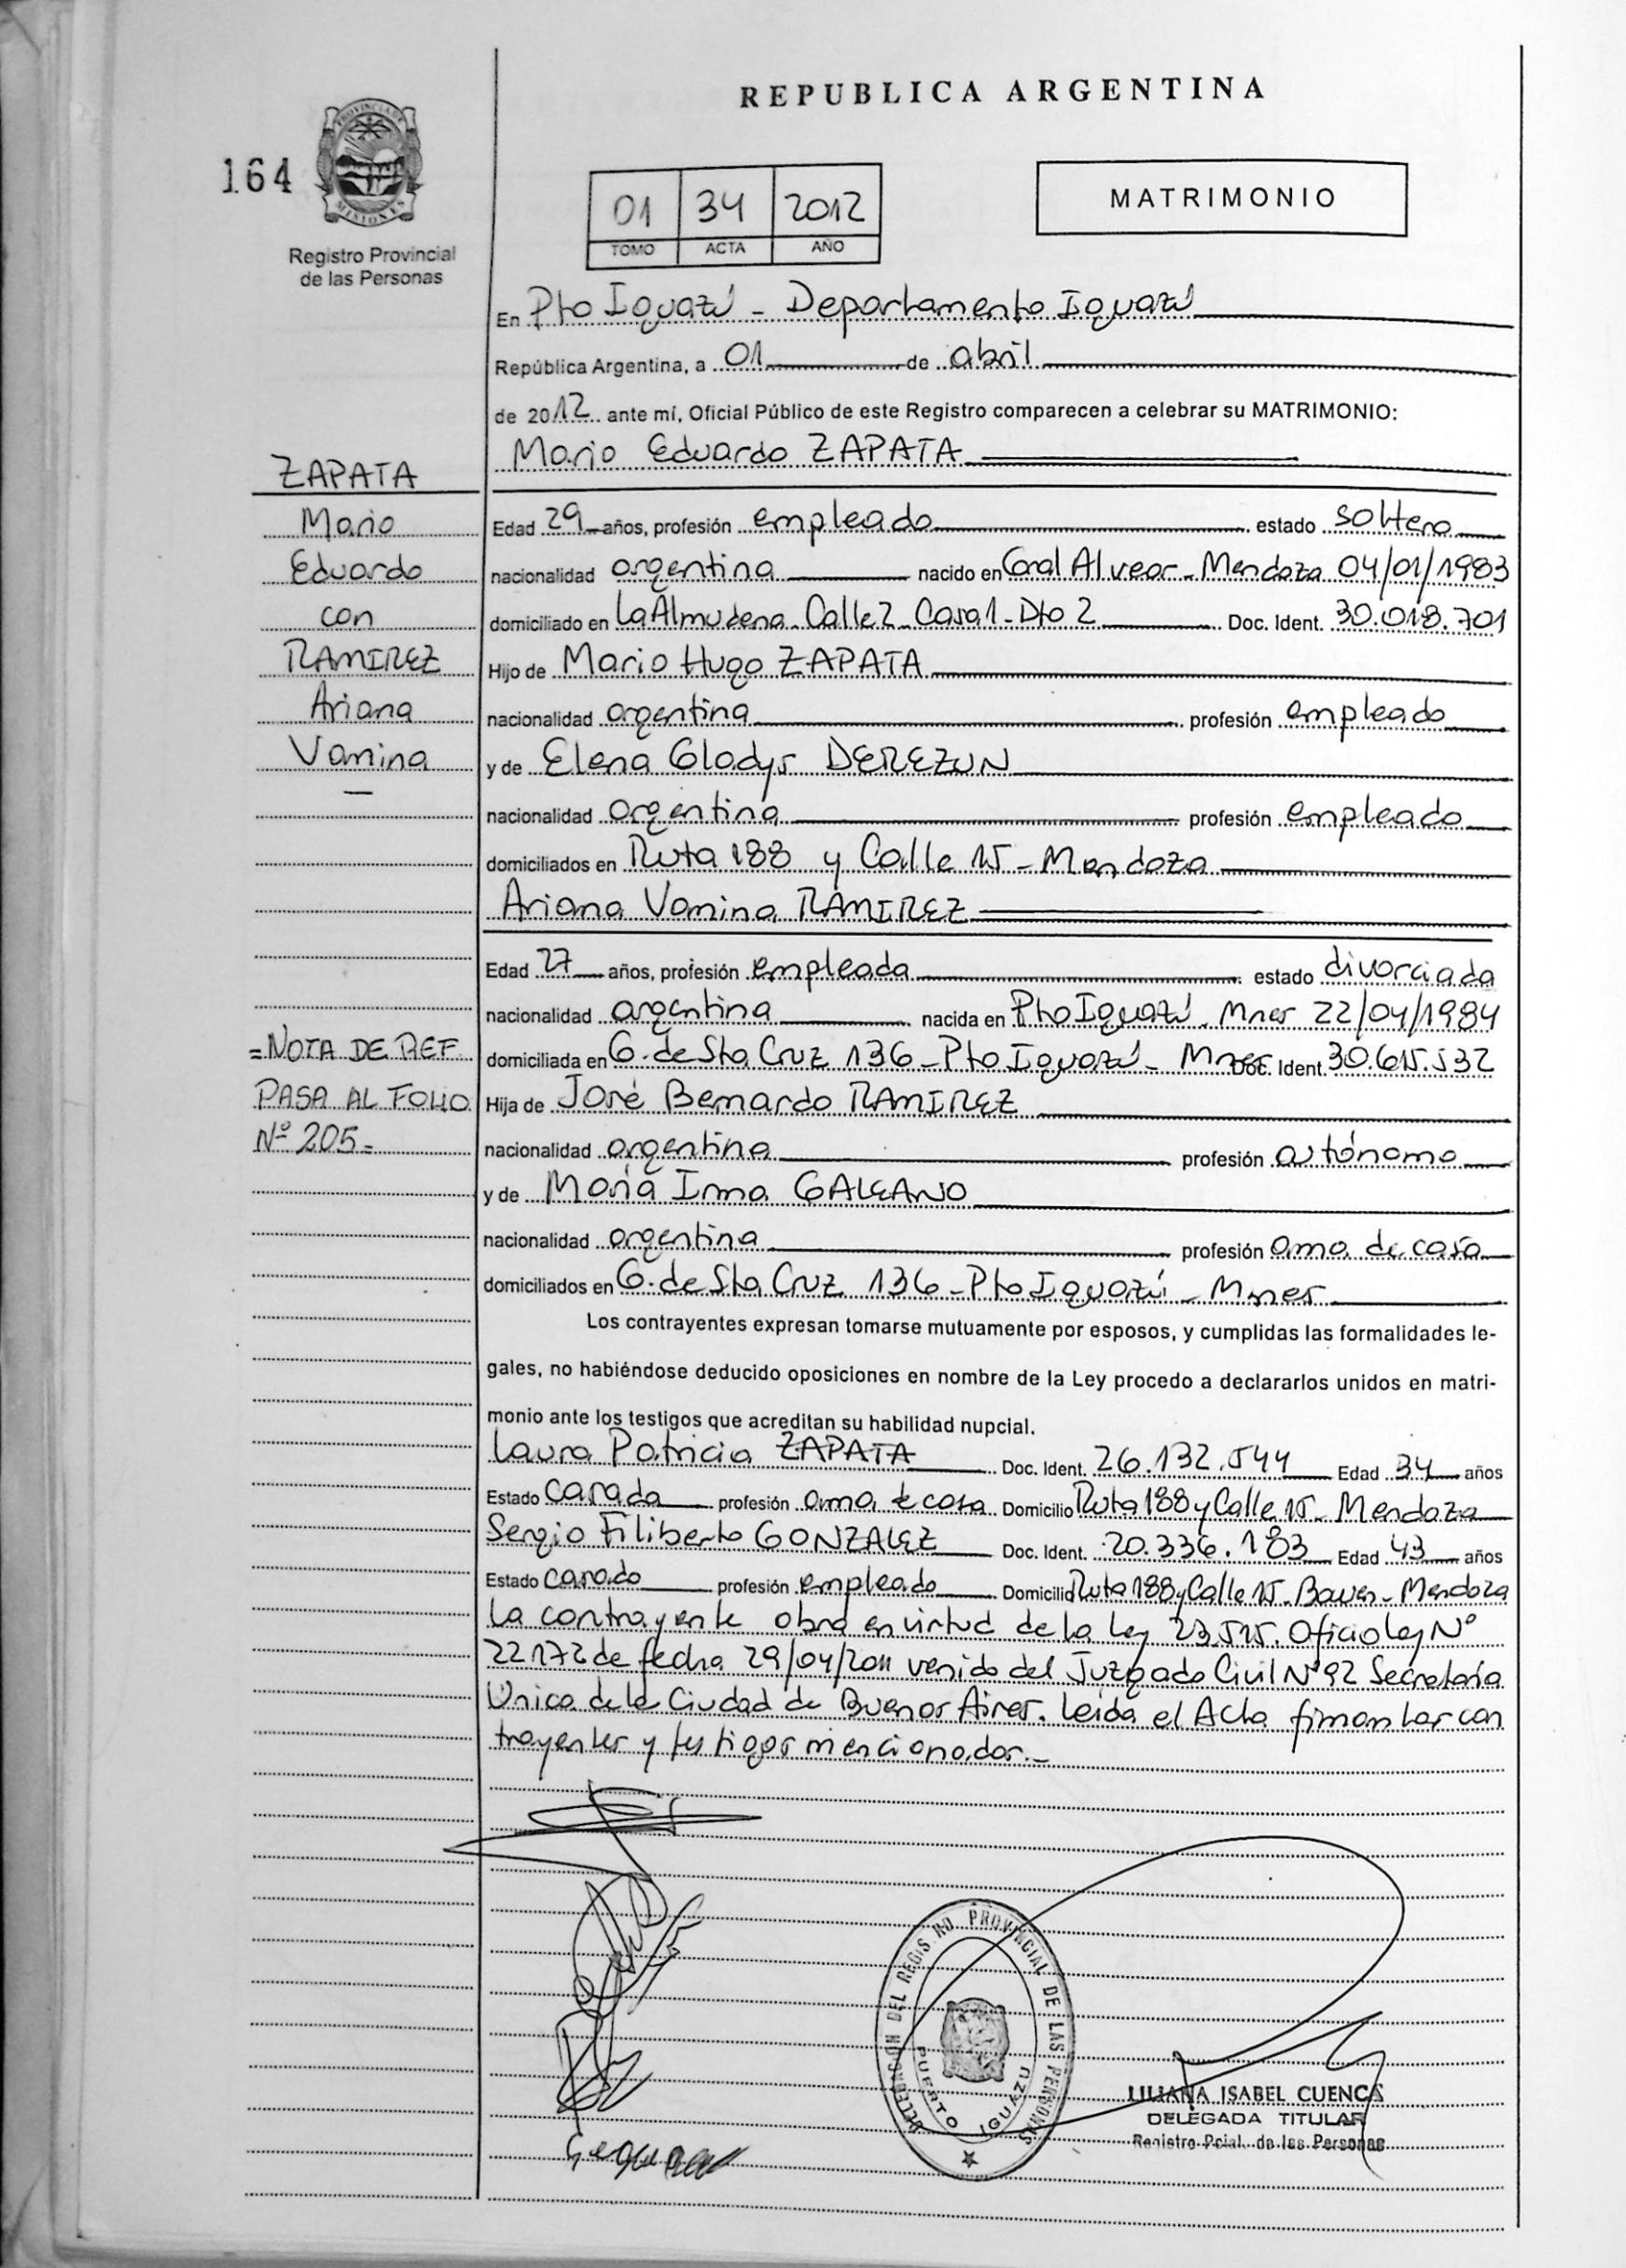 REPUBLICA ARGENTINA
164
PROVINCIA DE
MISIONES
Registro Provincial
de las Personas
01 34 2012
TOMO ACTA AÑO
MATRIMONIO
En Pto Iguazú - Departamento Iguazú
República Argentina, a 01 de abril
de 2012 ante mí, Oficial Público de este Registro comparecen a celebrar su MATRIMONIO:
Mario Eduardo ZAPATA
ZAPATA
Mario
Eduardo
con
RAMIREZ
Ariana
Vanina
—
Edad 29 años, profesión empleado estado soltero
nacionalidad argentina nacido en Gral Alvear - Mendoza 04/01/1983
domiciliado en La Almudena - Calle 2 - Casa 1 - Dto 2 Doc. Ident. 30.018.701
Hijo de Mario Hugo ZAPATA
nacionalidad argentina profesión empleado
y de Elena Gladys DEREZUN
nacionalidad argentina profesión empleado
domiciliados en Ruta 188 y Calle 15 - Mendoza
Ariana Vanina RAMIREZ
Edad 27 años, profesión empleada estado divorciada
nacionalidad argentina nacida en Pto Iguazú - Mnes 22/04/1984
domiciliada en G. de Sta Cruz 136 - Pto Iguazú - Mnes Doc. Ident. 30.615.532
Hija de José Bernardo RAMIREZ
nacionalidad argentina profesión autónomo
y de María Irma GALEANO
nacionalidad argentina profesión ama de casa
domiciliados en G. de Sta Cruz 136 - Pto Iguazú - Mnes
=NOTA DE REF
PASA AL FOLIO
Nº 205-
Los contrayentes expresan tomarse mutuamente por esposos, y cumplidas las formalidades le-
gales, no habiéndose deducido oposiciones en nombre de la Ley procedo a declararlos unidos en matri-
monio ante los testigos que acreditan su habilidad nupcial.
Laura Patricia ZAPATA Doc. Ident. 26.132.544 Edad 34 años
Estado casada profesión ama de casa Domicilio Ruta 188 y Calle 15 - Mendoza
Sergio Filiberto GONZALEZ Doc. Ident. 20.336.183 Edad 43 años
Estado casado profesión empleado Domicilio Ruta 188 y Calle 15 - Bowen - Mendoza
La contrayente obra en virtud de la Ley 23.515. Oficio Ley Nº
22172 de fecha 29/04/2011 venido del Juzgado Civil Nº 92 Secretaría
Unica de la Ciudad de Buenos Aires. Leída el Acta firman los con
trayentes y testigos mencionados.-
DELEGACION DEL REGISTRO PROVINCIAL DE LAS PERSONAS
PUERTO IGUAZU
LILIANA ISABEL CUENCA
DELEGADA TITULAR
Registro Pcial. de las Personas